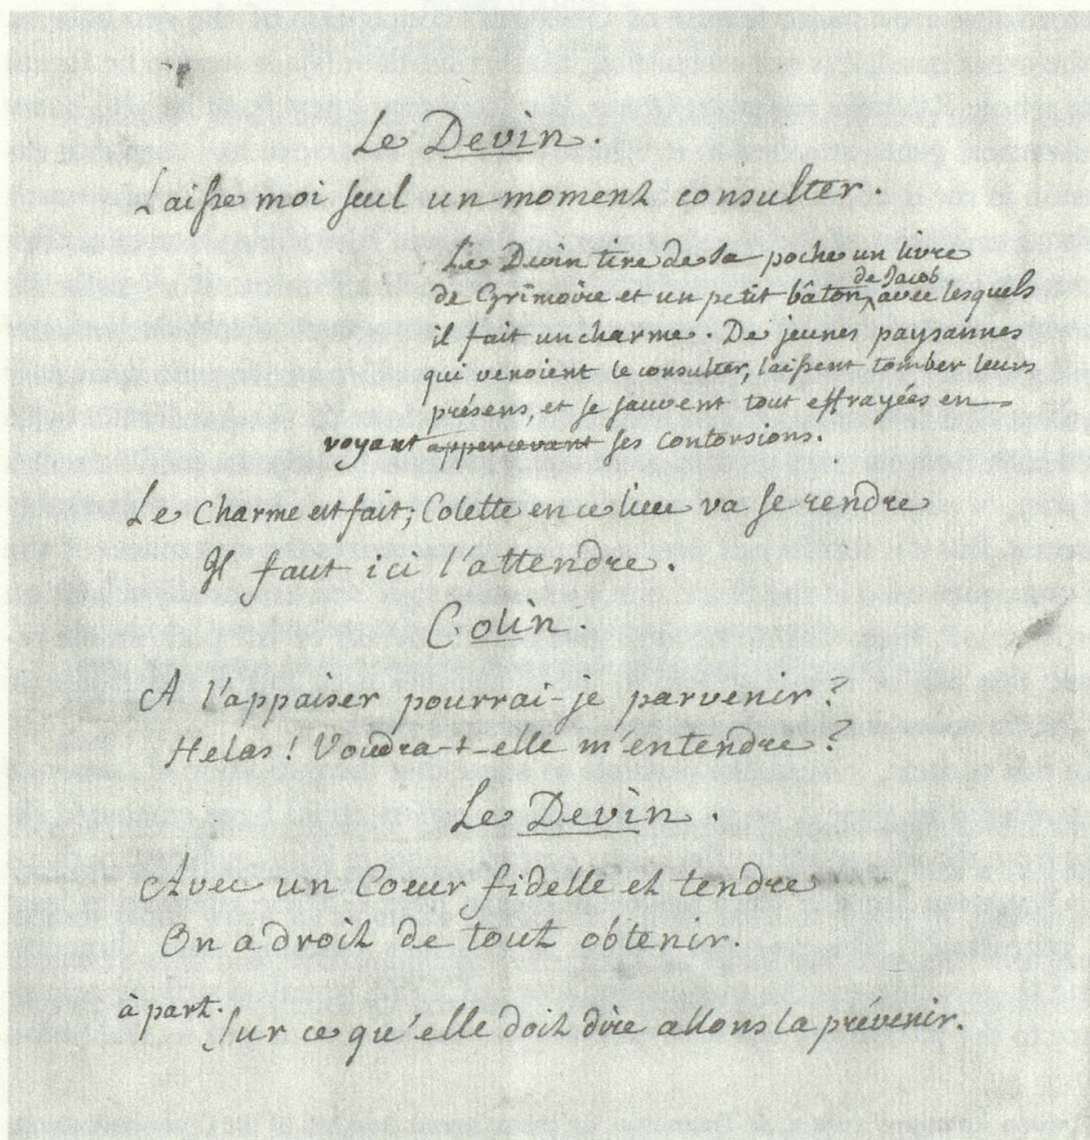 Le Devin.
Laisse moi seul un moment consulter.
Le Devin tire de sa poche un livre
de Grimoire et un petit bâton de Jacob avec lesquels
il fait un charme. De jeunes paysannes
qui venoient le consulter, laissent tomber leurs
présens, et se sauvent tout effrayées en
voyant appercevant ses contorsions.
Le Charme est fait; Colette en ce lieu va se rendre
Il faut ici l'attendre.
Colin.
A l'appaiser pourrai-je parvenir?
Helas! Voudra-t-elle m'entendre?
Le Devin.
Avec un Cœur fidelle et tendre
On a droit de tout obtenir.
à part. Sur ce qu'elle doit dire allons la prévenir.